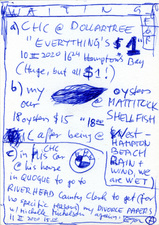 WAITING
a) CHC @ DOLLARTREE
"EVERYTHING'S $1"
10 II 2020 1/24 Hampton Bays
(Huge, but all $1!)
b) my oysters
our @ MATTITUCK
18 oysters $15 "18 SHELLFISH
after being @ WEST-
HAMPTON
BEACH
RAIN +
WIND, we
are WET
c) CHC
in his car
@ his house
in QUOGUE to go to
RIVERHEAD County Clerk to get (for
no specific reason) DIVORCE PAPERS
Michelle
11 II 2020